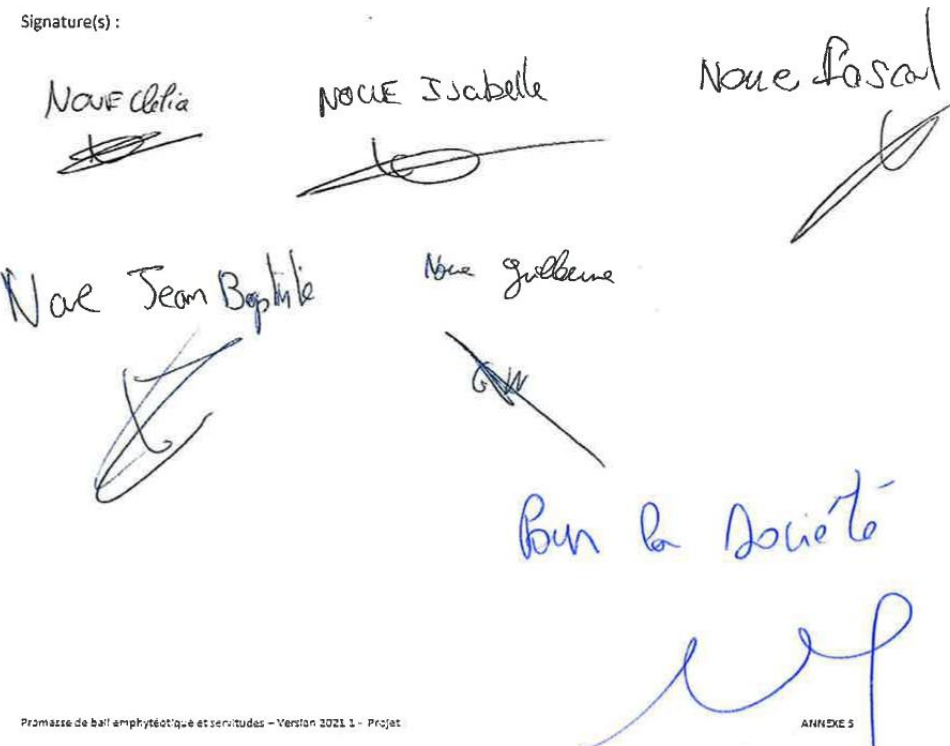 Signature(s) :
NOUE Clélia
NOUE Isabelle
Noue Pascal
Noue Jean Baptiste
Noue Guillaume
Pour la société
Promesse de bail emphytéotique et servitudes – Version 2021 1 - Projet
ANNEXE 5